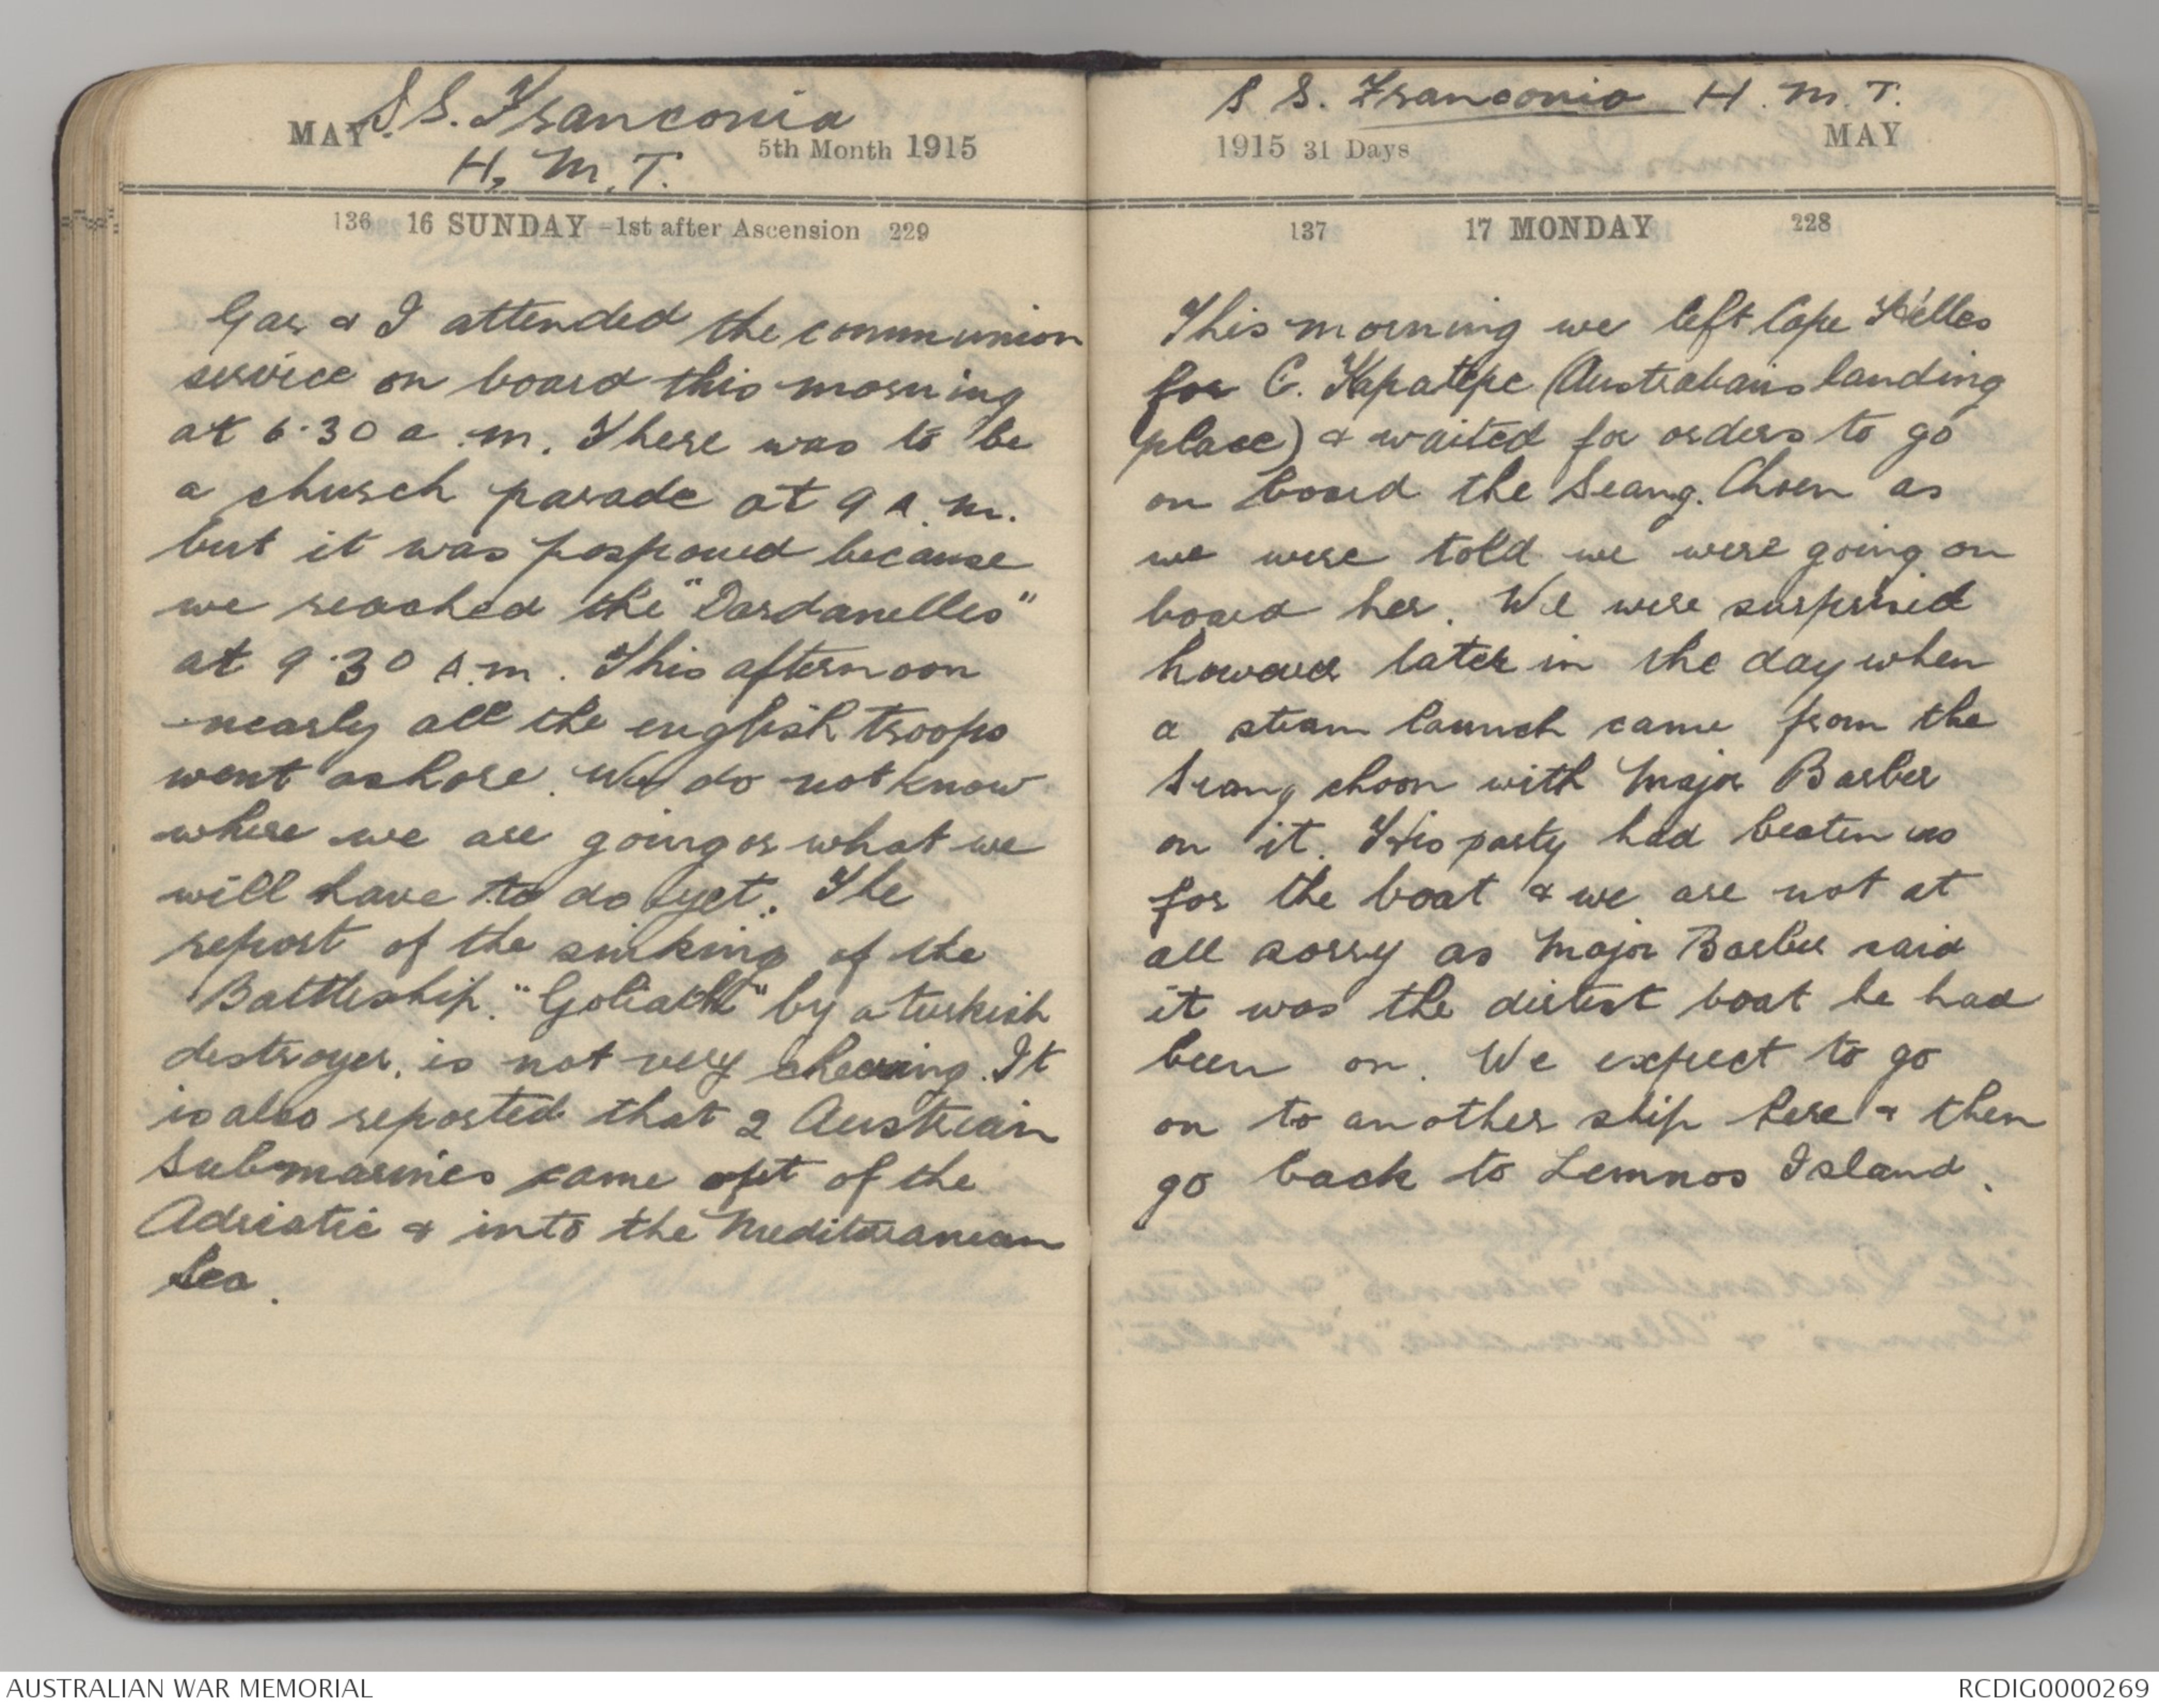 S.S. Franconia
MAY 5th Month 1915
H. M. T.
136 16 SUNDAY - 1st after Ascension 229
Gas & I attended the communion
service on board this morning
at 6.30 a.m. There was to be
a church parade at 9 a.m.
but it was posponed because
we reached the "Dardanelles"
at 9.30 a.m. This afternoon
nearly all the english troops
went ashore. We do not know
where we are going or what we
will have to do yet. The
report of the sinking of the
Battleship "Goliath" by a turkish
destroyer, is not very cheering. It
is also reported that 2 Austrian
Submarines came out of the
Adriatic & into the Mediteranean
Sea.
S S. Franconia H. M. T.
1915 31 Days MAY
137 17 MONDAY 228
This morning we left Cape Helles
for C. Kapatepe (Australians landing
place) & waited for orders to go
on board the Seang. Choen as
we were told we were going on
board her. We were surprised
however later in the day when
a steam launch came from the
Seang choon with Major Barber
on it. His party had beaten us
for the boat & we are not at
all sorry as Major Barber said
it was the dirtest boat he had
been on. We expect to go
on to another ship here & then
go back to Lemnos Island.
AUSTRALIAN WAR MEMORIAL
RCDIG0000269